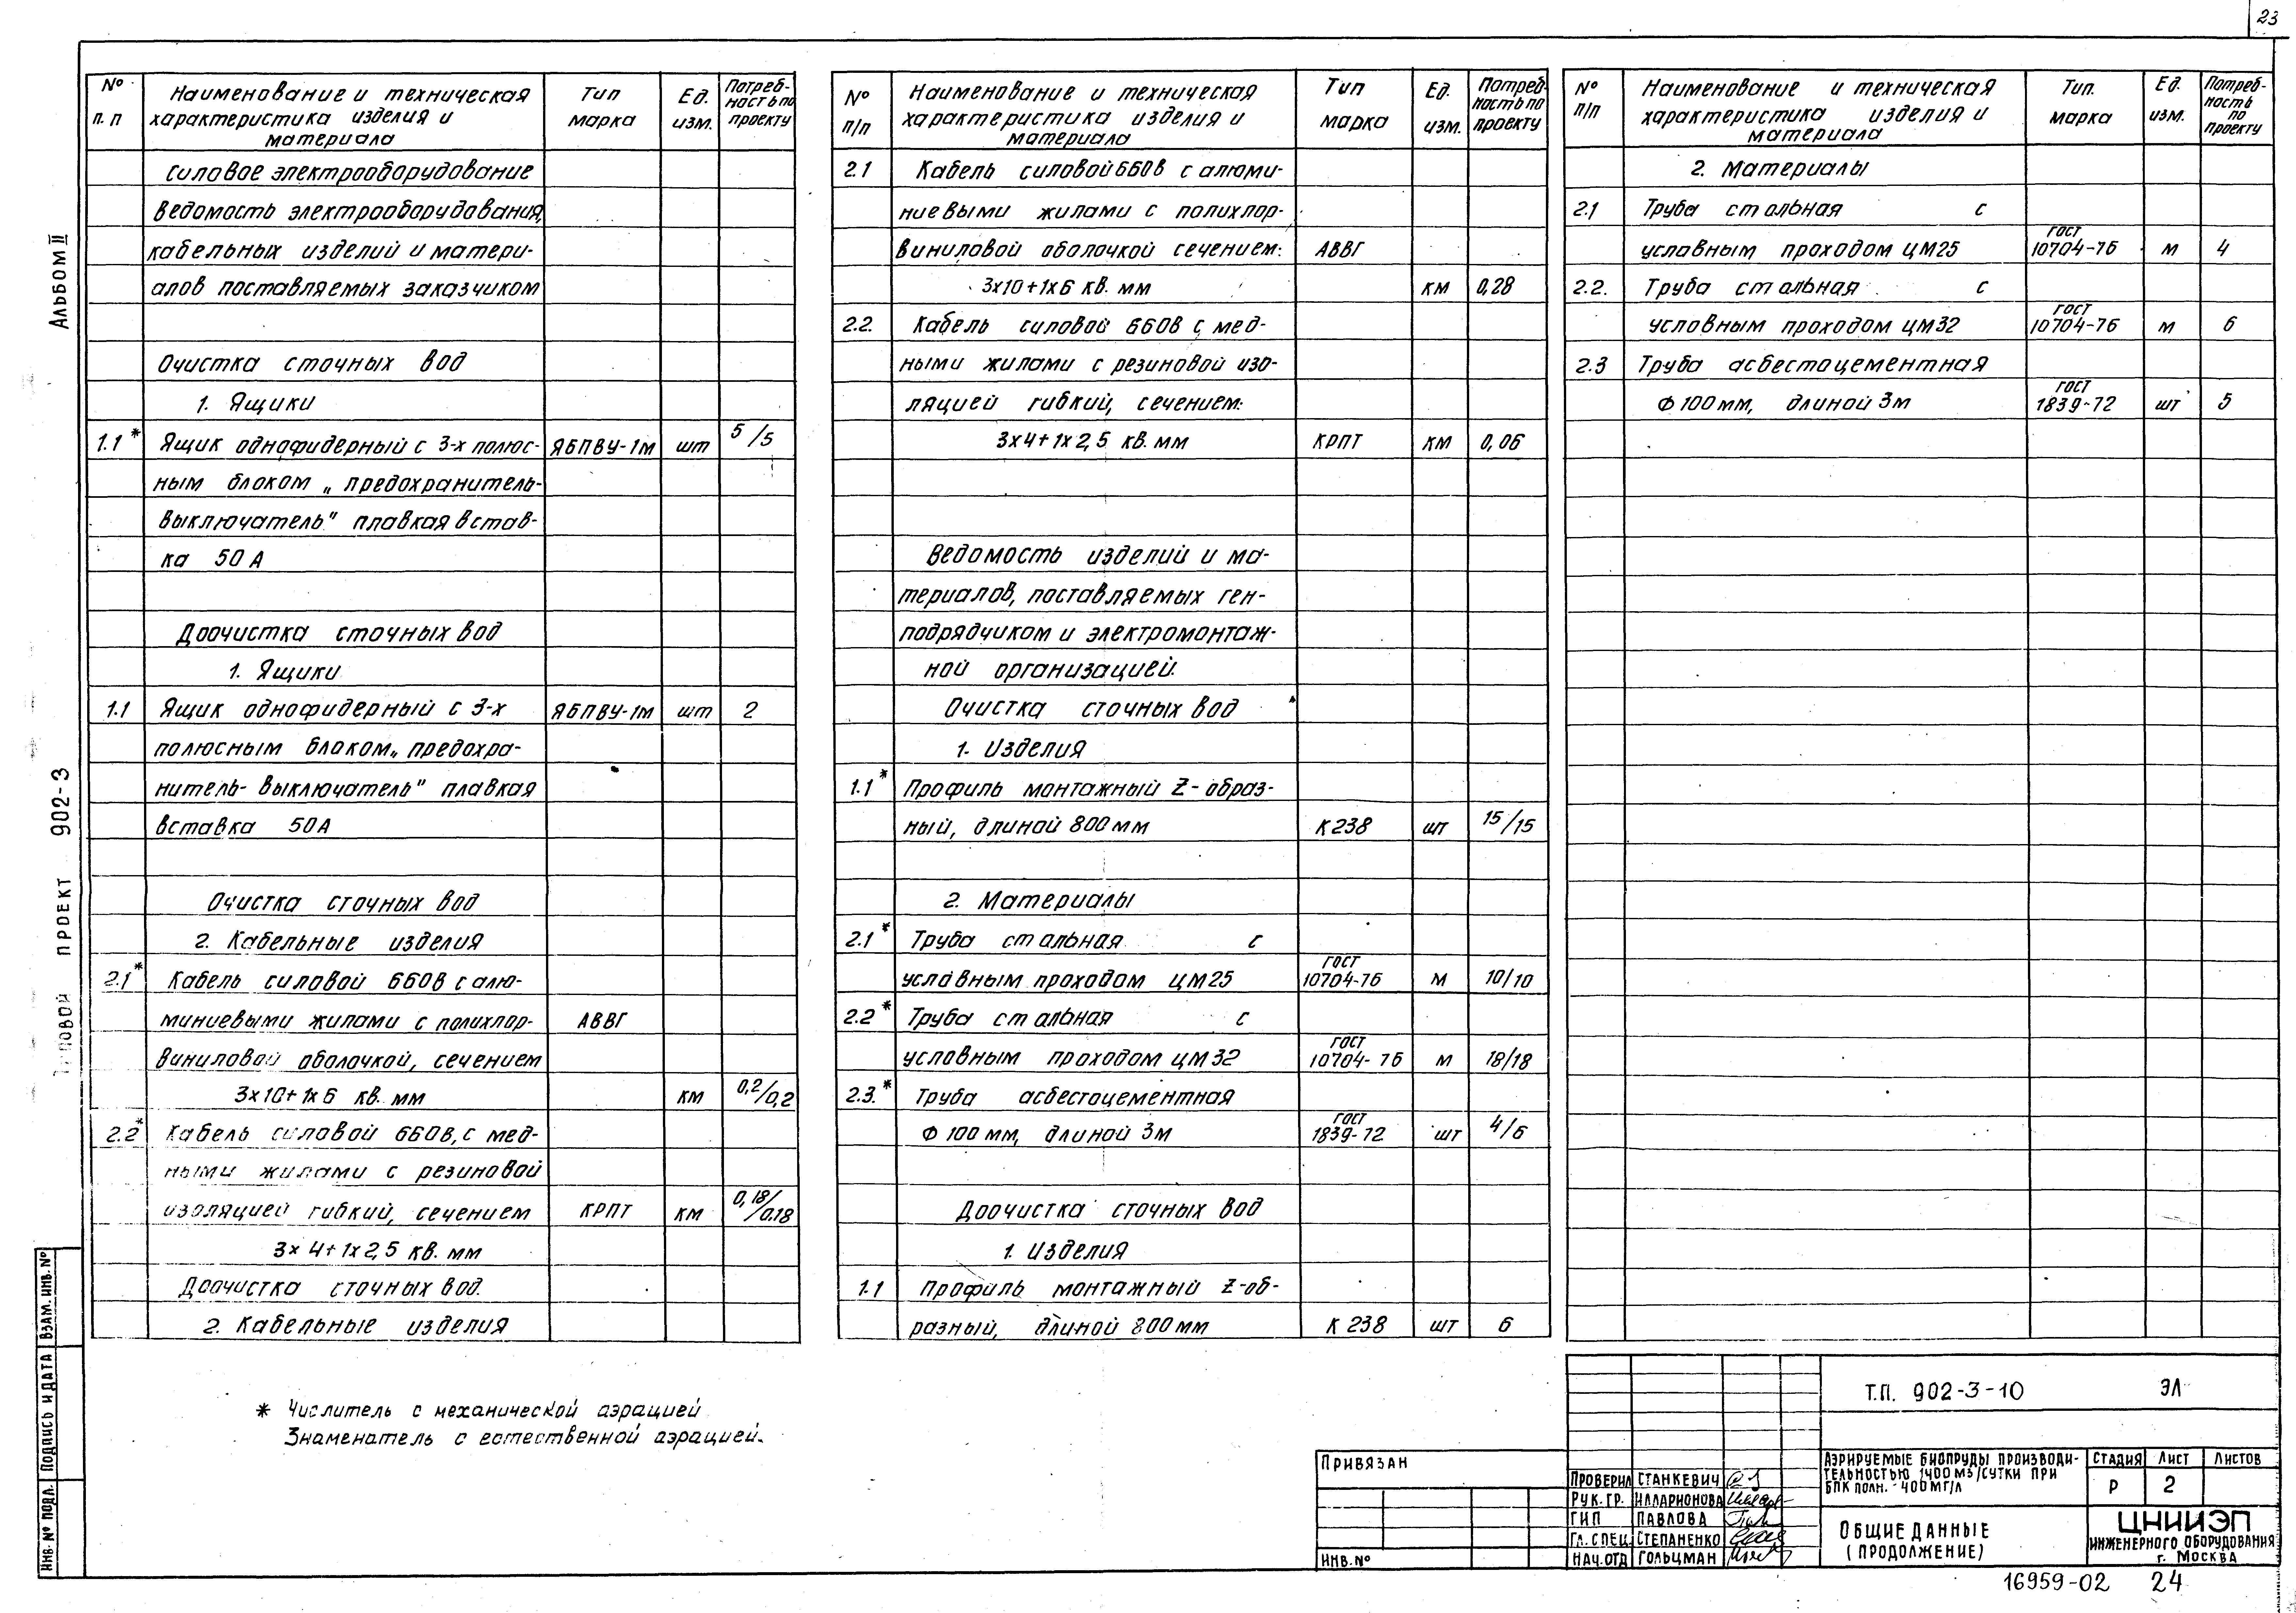 23
Альбом II
Типовой проект 902-3
№ п.п
Наименование и техническая характеристика изделия и материала
Тип марка
Ед. изм.
Потребность по проекту
Силовое электрооборудование
Ведомость электрооборудования,
кабельных изделий и матери-
алов поставляемых заказчиком
Очистка сточных вод
1. Ящики
1.1* Ящик однофидерный с 3-х полюс- ЯБПВУ-1м шт 5/5
ным блоком „предохранитель-
выключатель" плавкая встав-
ка 50 А
Доочистка сточных вод
1. Ящики
1.1 Ящик однофидерный с 3-х ЯБПВУ-1м шт 2
полюсным блоком „предохра-
нитель-выключатель" плавкая
вставка 50А
Очистка сточных вод
2. Кабельные изделия
2.1* Кабель силовой 660В с алю-
миниевыми жилами с полихлор- АВВГ
виниловой оболочкой, сечением
3х10+1х6 кв. мм км 0,2/0,2
2.2* Кабель силовой 660В, с мед-
ными жилами с резиновой
изоляцией гибкий, сечением КРПТ км 0,18/0.18
3х4+1х2,5 кв. мм
Доочистка сточных вод.
2. Кабельные изделия
№ п/п
Наименование и техническая характеристика изделия и материала
Тип марка
Ед. изм.
Потребность по проекту
2.1 Кабель силовой 660В с алюми-
ниевыми жилами с полихлор-
виниловой оболочкой сечением: АВВГ
3х10+1х6 кв. мм км 0,28
2.2. Кабель силовой 660В с мед-
ными жилами с резиновой изо-
ляцией гибкий, сечением:
3х4+1х2,5 кв. мм КРПТ км 0,06
Ведомость изделий и ма-
териалов, поставляемых ген-
подрядчиком и электромонтаж-
ной организацией.
Очистка сточных вод
1. Изделия
1.1* Профиль монтажный Z-образ-
ный, длиной 800мм К238 шт 15/15
2. Материалы
2.1* Труба стальная с
условным проходом цм25 ГОСТ 10704-76 м 10/10
2.2* Труба стальная с
условным проходом цм32 ГОСТ 10704-76 м 18/18
2.3.* Труба асбестоцементная
Ф 100мм, длиной 3м ГОСТ 1839-72 шт 4/6
Доочистка сточных вод
1. Изделия
1.1 Профиль монтажный Z-об-
разный, длиной 800мм К 238 шт 6
№ п/п
Наименование и техническая характеристика изделия и материала
Тип. марка
Ед. изм.
Потребность по проекту
2. Материалы
2.1 Труба стальная с
условным проходом цм25 ГОСТ 10704-76 м 4
2.2. Труба стальная с
условным проходом цм32 ГОСТ 10704-76 м 6
2.3 Труба асбестоцементная
Ф 100мм, длиной 3м ГОСТ 1839-72 шт 5
* Числитель с механической аэрацией
Знаменатель с естественной аэрацией.
Инв. № подл. Подпись и дата Взам. инв. №
Привязан
Инв. №
Проверил Станкевич
Рук. гр. Илларионова
ГИП Павлова
Гл. спец. Степаненко
Нач. отд Гольцман
Т.П. 902-3-10 ЭЛ
Аэрируемые биопруды производи-
тельностью 1400 м3/сутки при
БПК полн. - 400мг/л
Стадия Лист Листов
Р 2
Общие данные
(продолжение)
ЦНИИЭП
инженерного оборудования
г. Москва
16959-02 24